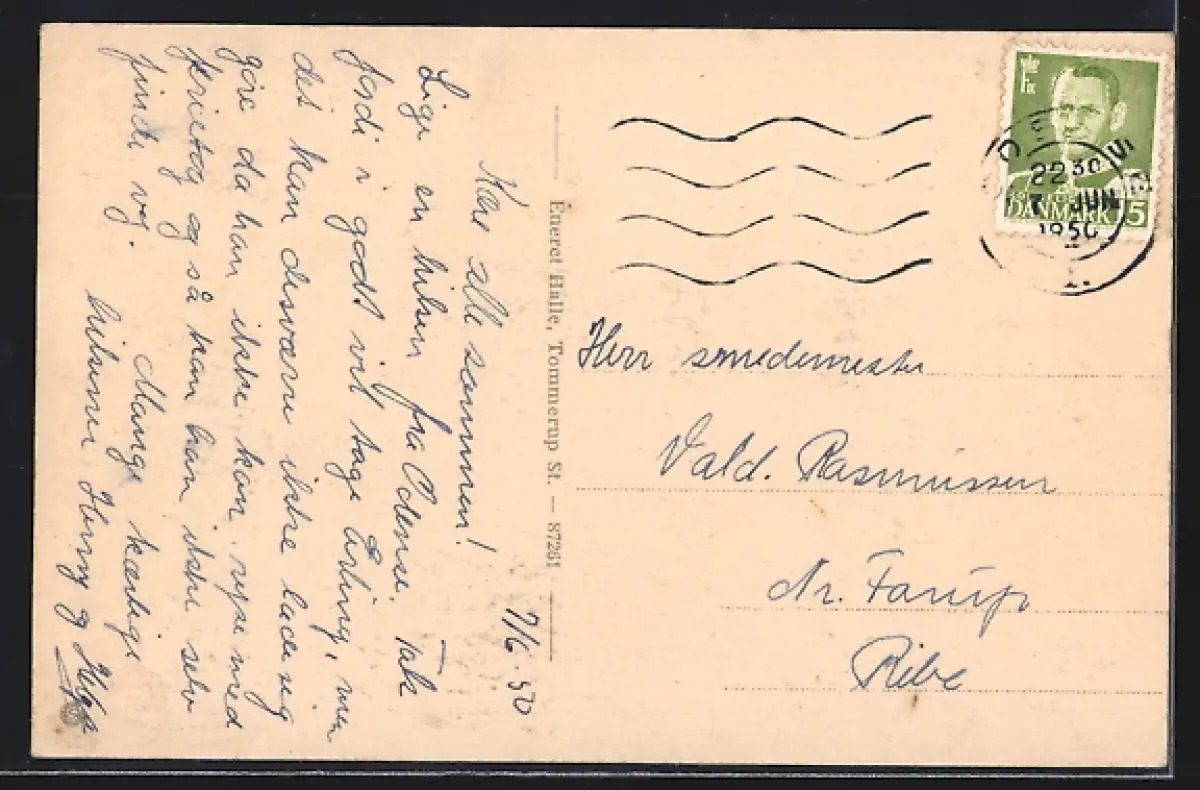 7/6. 50
Kære alle sammen!
Lige en hilsen fra Odense. Tak
fordi i godt vil tage Erling, men
det kan desværre ikke lade sig
gøre da han ikke kan rejse med
friletog og så kan han ikke selv
finde vej.
Mange kærlige
hilsner Henny og Helge
Eneret Halle, Tommerup St. — 87261
2230
7. JUN.
1950
DANMARK 15
Herr smedemester
Vald. Rasmussen
Nr. Farup
Ribe